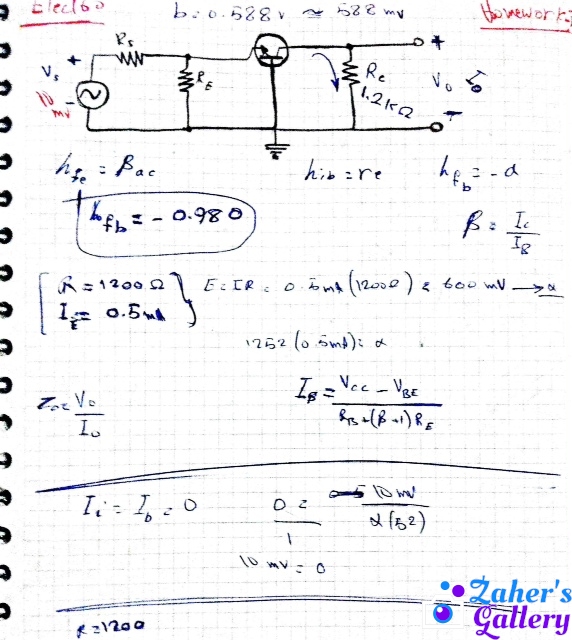 Electro
b = 0.588v ≈ 588 mv
Homework
Rs
+
Vs
10 mv
-
RE
Rc
1.2kΩ
+
Vo
-
hfe = βac
hib = re
hfb = -α
hfb = - 0.980
β = Ic / IB
R = 1200 Ω
IE = 0.5mA
E = IR = 0.5mA (1200Ω) = 600 mV → α
(0.5mA) = α
Zo = Vo / Io
IB = Vcc - VBE / RB + (β + 1) RE
Ii = Ib = 0
0 = 10 mv / α (52)
1
10 mv = 0
R = 1200
Zaher's
Gallery